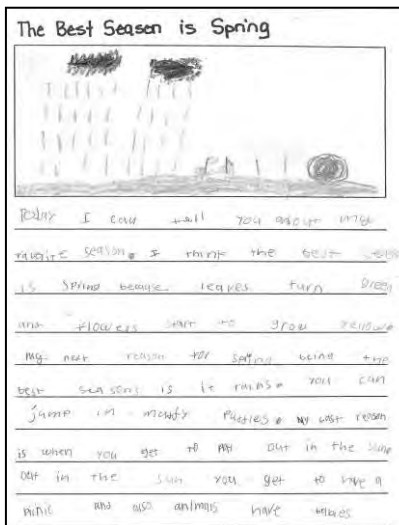 The Best Season is Spring
Today I can tell you about my
favorite season. I think the best
is spring because leaves turn green
and flowers start to grow
my next reason for spring being the
best seasons is it rains. you can
jump in muddy my last reason
is when you get to out in the
out in the sun you get to have a
and also animals have babies